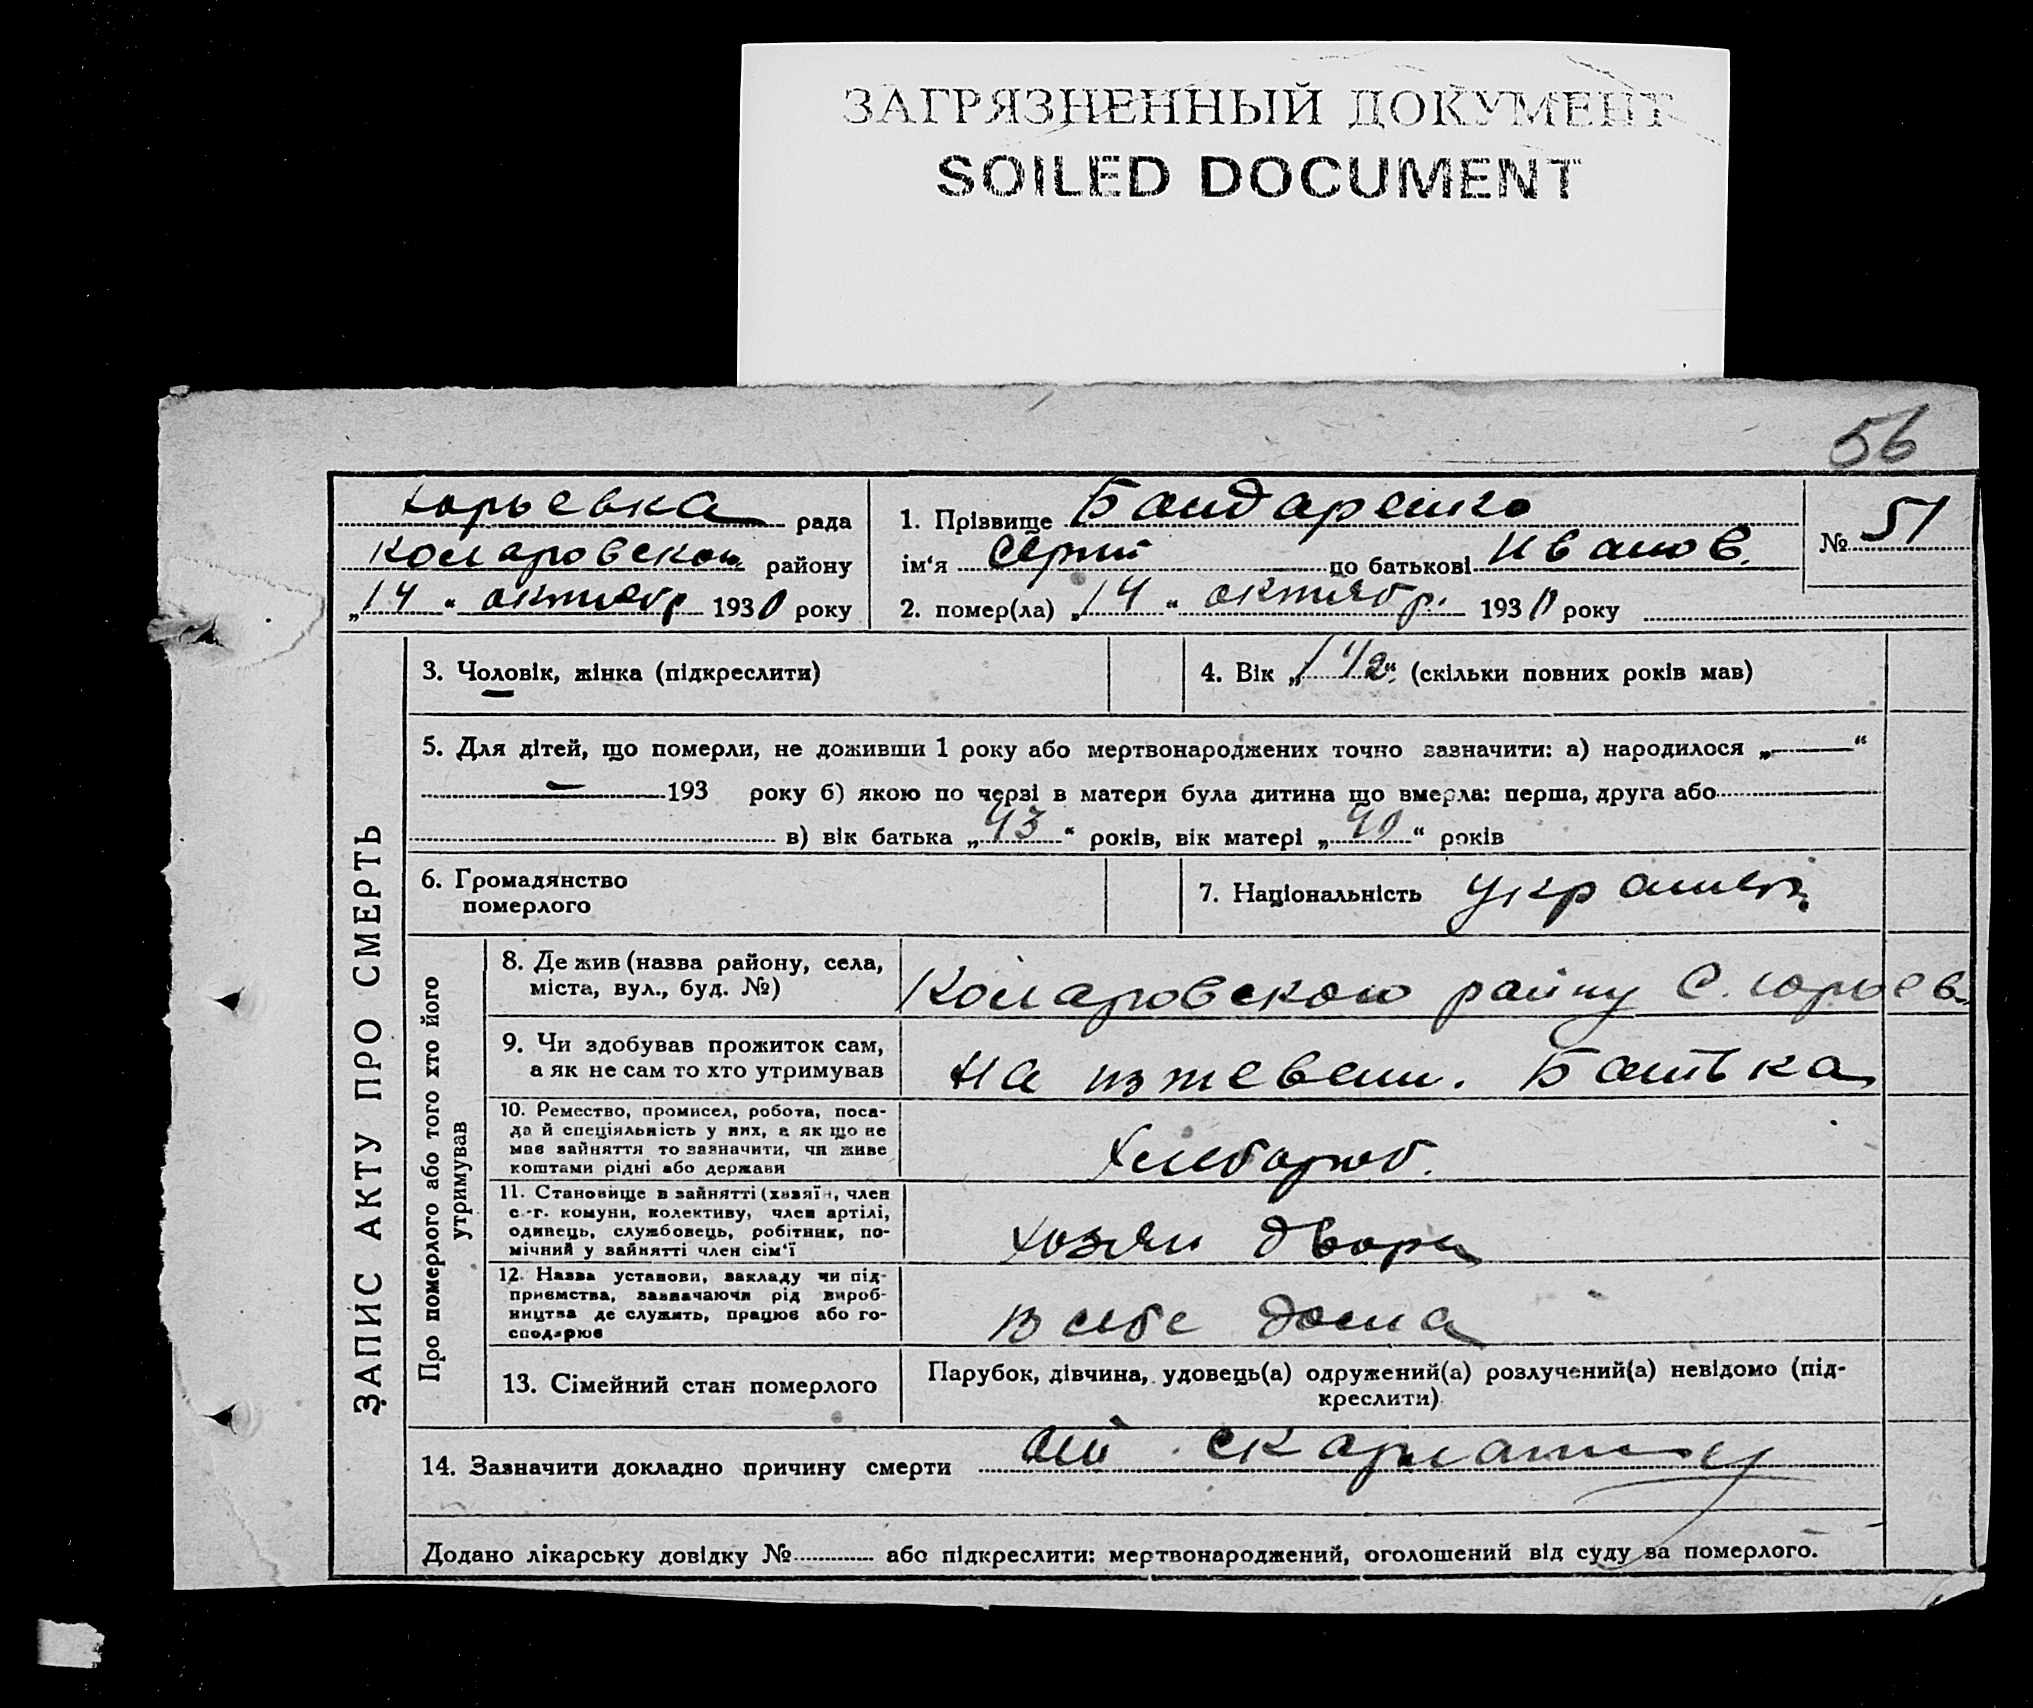 ЗАГРЯЗНЕННЫЙ ДОКУМЕНТ
SOILED DOCUMENT
56
Юрьевка рада
Комаровском району
„14“ октябр 1930 року
1. Прізвище Бандаренко
ім‘я Сергий по батькові Иванов.
2. помер(ла) „14“ октябр. 1930 року
№ 51
ЗАПИС АКТУ ПРО СМЕРТЬ
3. Чоловік, жінка (підкреслити)
4. Вік „1 1/2“ (скільки повних років мав)
5. Для дітей, що померли, не доживши 1 року або мертвонароджених точно зазначити: а) народилося „—“
— 193 року б) якою по черзі в матери була дитина що вмерла: перша, друга або
в) вік батька „43“ років, вік матері „40“ років
6. Громадянство
померлого
7. Національність Украинец
Про померлого або того хто його
утримував
8. Де жив (назва району, села,
міста, вул., буд. №)
Комаровского району С. Юрьев.
9. Чи здобував прожиток сам,
а як не сам то хто утримував
На иждевен. Батька
10. Ремество, промисел, робота, поса-
да й спеціяльність у них, а як що не
має зайняття то зазначити, чи живе
коштами рідні або держави
Хлебороб.
11. Становище в зайнятті (хазяїн, член
с.-г. комуни, колективу, член артілі,
одинець, службовець, робітник, по-
мічний у зайнятті член сім‘ї
хозяин двора
12. Назва установи, закладу чи під-
приємства, зазначаючи рід вироб-
ництва де служить, працює або го-
сподарює
В себе дома
13. Сімейний стан померлого
Парубок, дівчина, удовець(а) одружений(а) розлучений(а) невідомо (під-
креслити)
14. Зазначити докладно причину смерти от скарлатину
Додано лікарську довідку № або підкреслити: мертвонароджений, оголошений від суду за померлого.